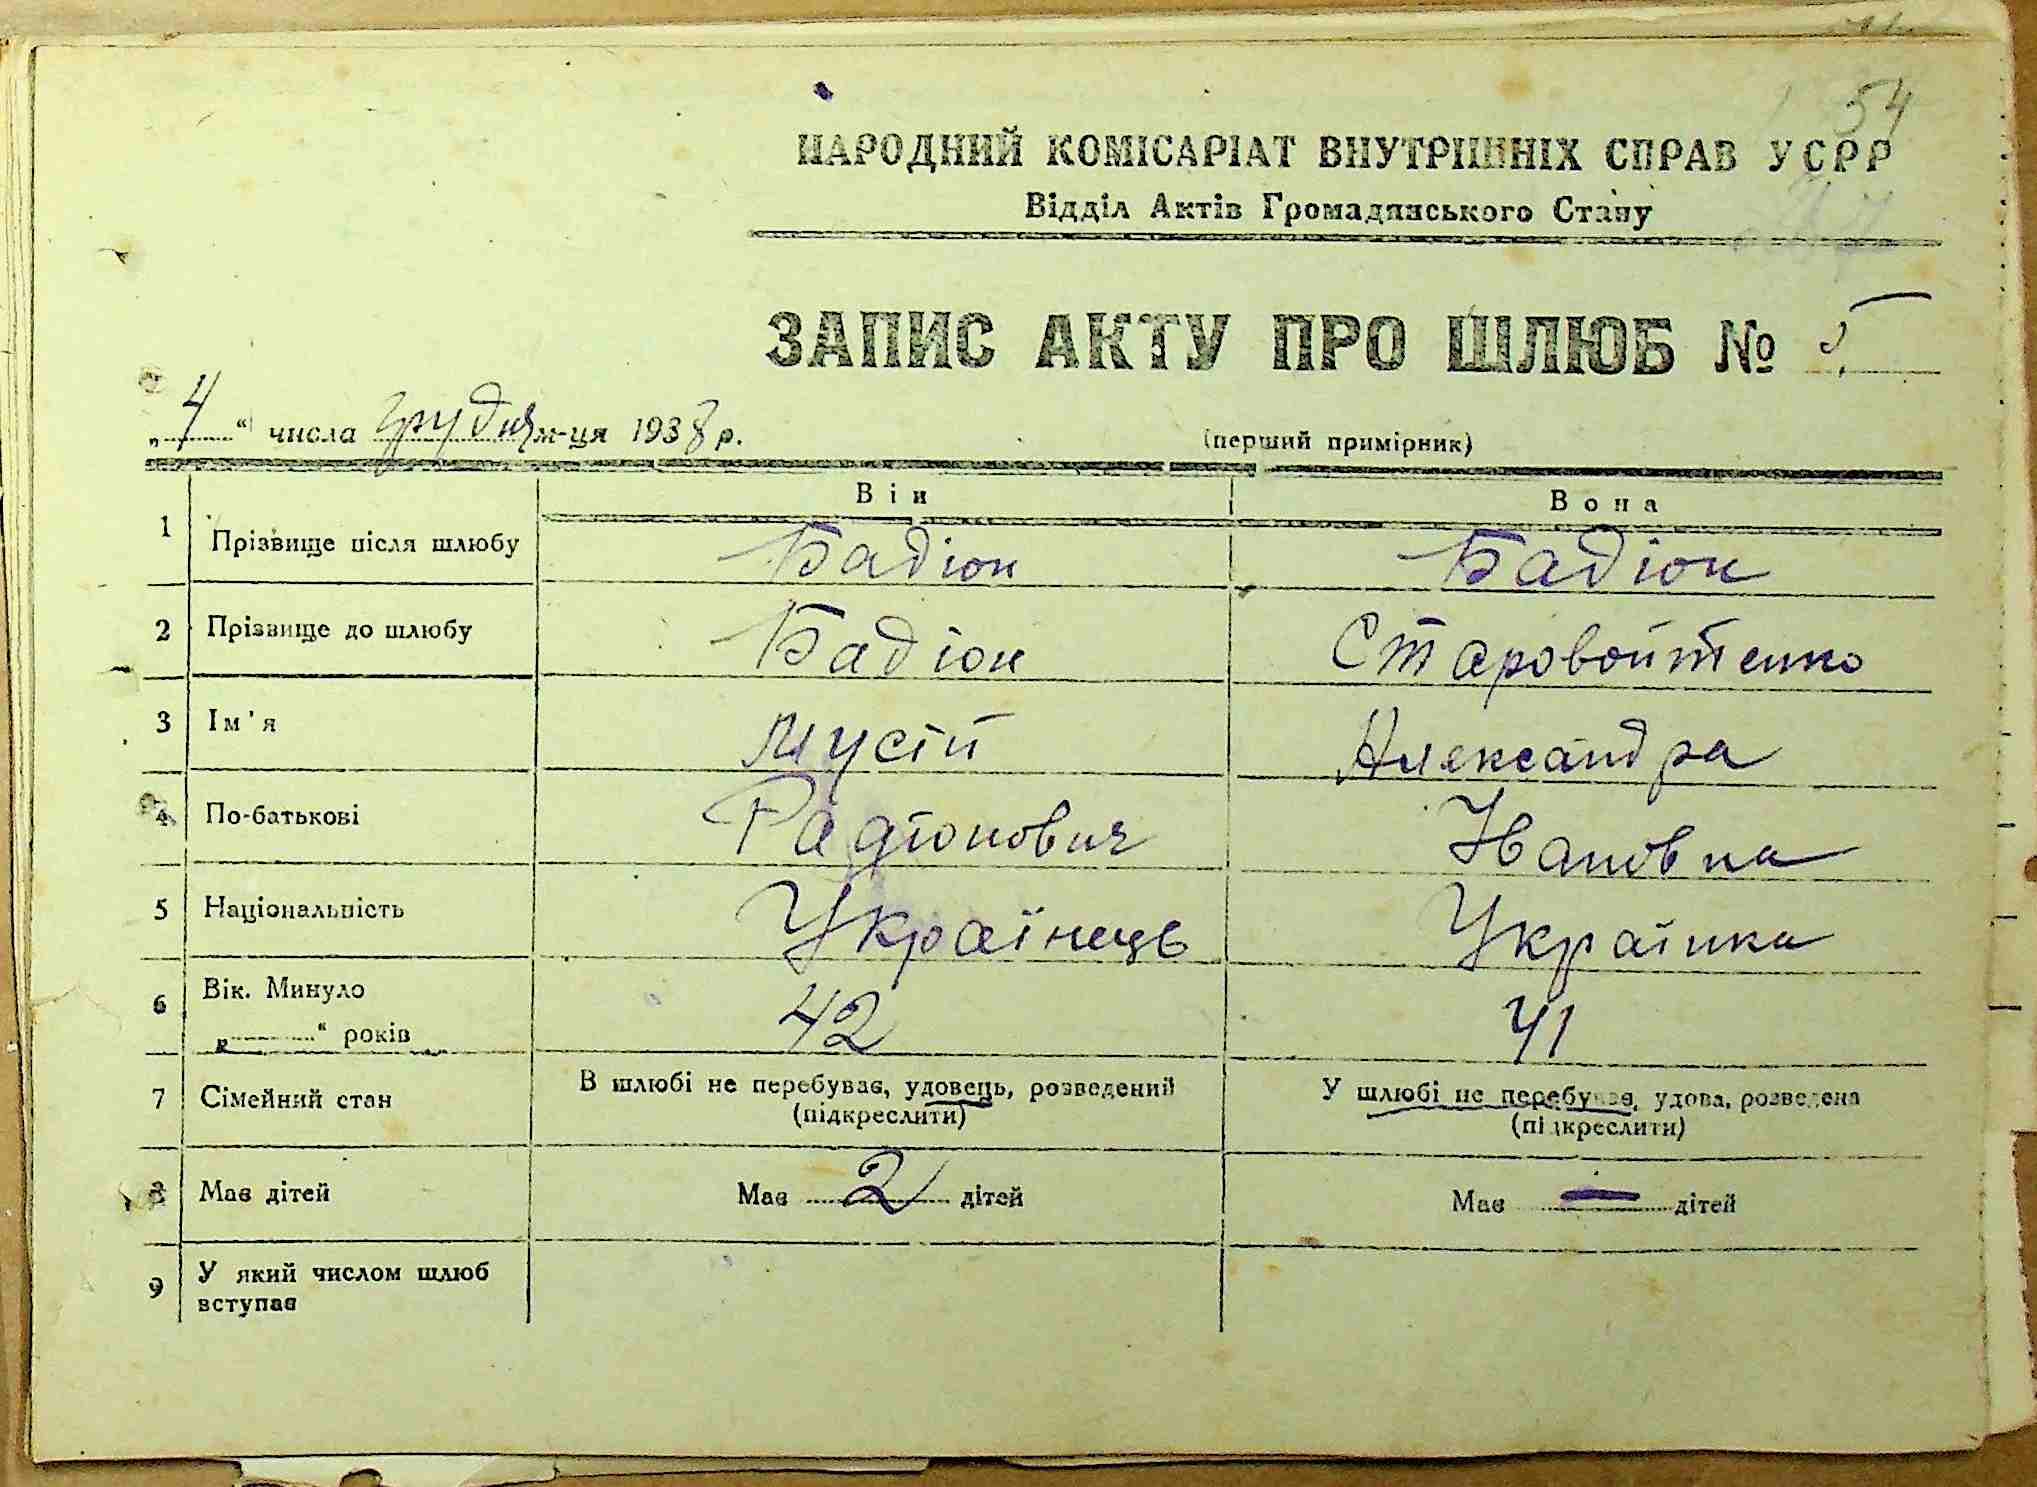 54
НАРОДНИЙ КОМІСАРІАТ ВНУТРІШНІХ СПРАВ УСРР
Відділ Актів Громадянського Стану
ЗАПИС АКТУ ПРО ШЛЮБ № 5
„4“ числа грудня м-ця 1938 р.
(перший примірник)
Він Вона
1 Прізвище після шлюбу Бадіон Бадіон
2 Прізвище до шлюбу Бадіон Старовойтенко
3 Ім'я Мусій Александра
4 По-батькові Радіонович Івановна
5 Національність Українець Українка
6 Вік. Минуло
„ “ років 42 41
7 Сімейний стан В шлюбі не перебував, удовець, розведений У шлюбі не перебував, удова, розведена
(підкреслити) (підкреслити)
8 Має дітей Має 2 дітей Має — дітей
9 У який числом шлюб
вступає